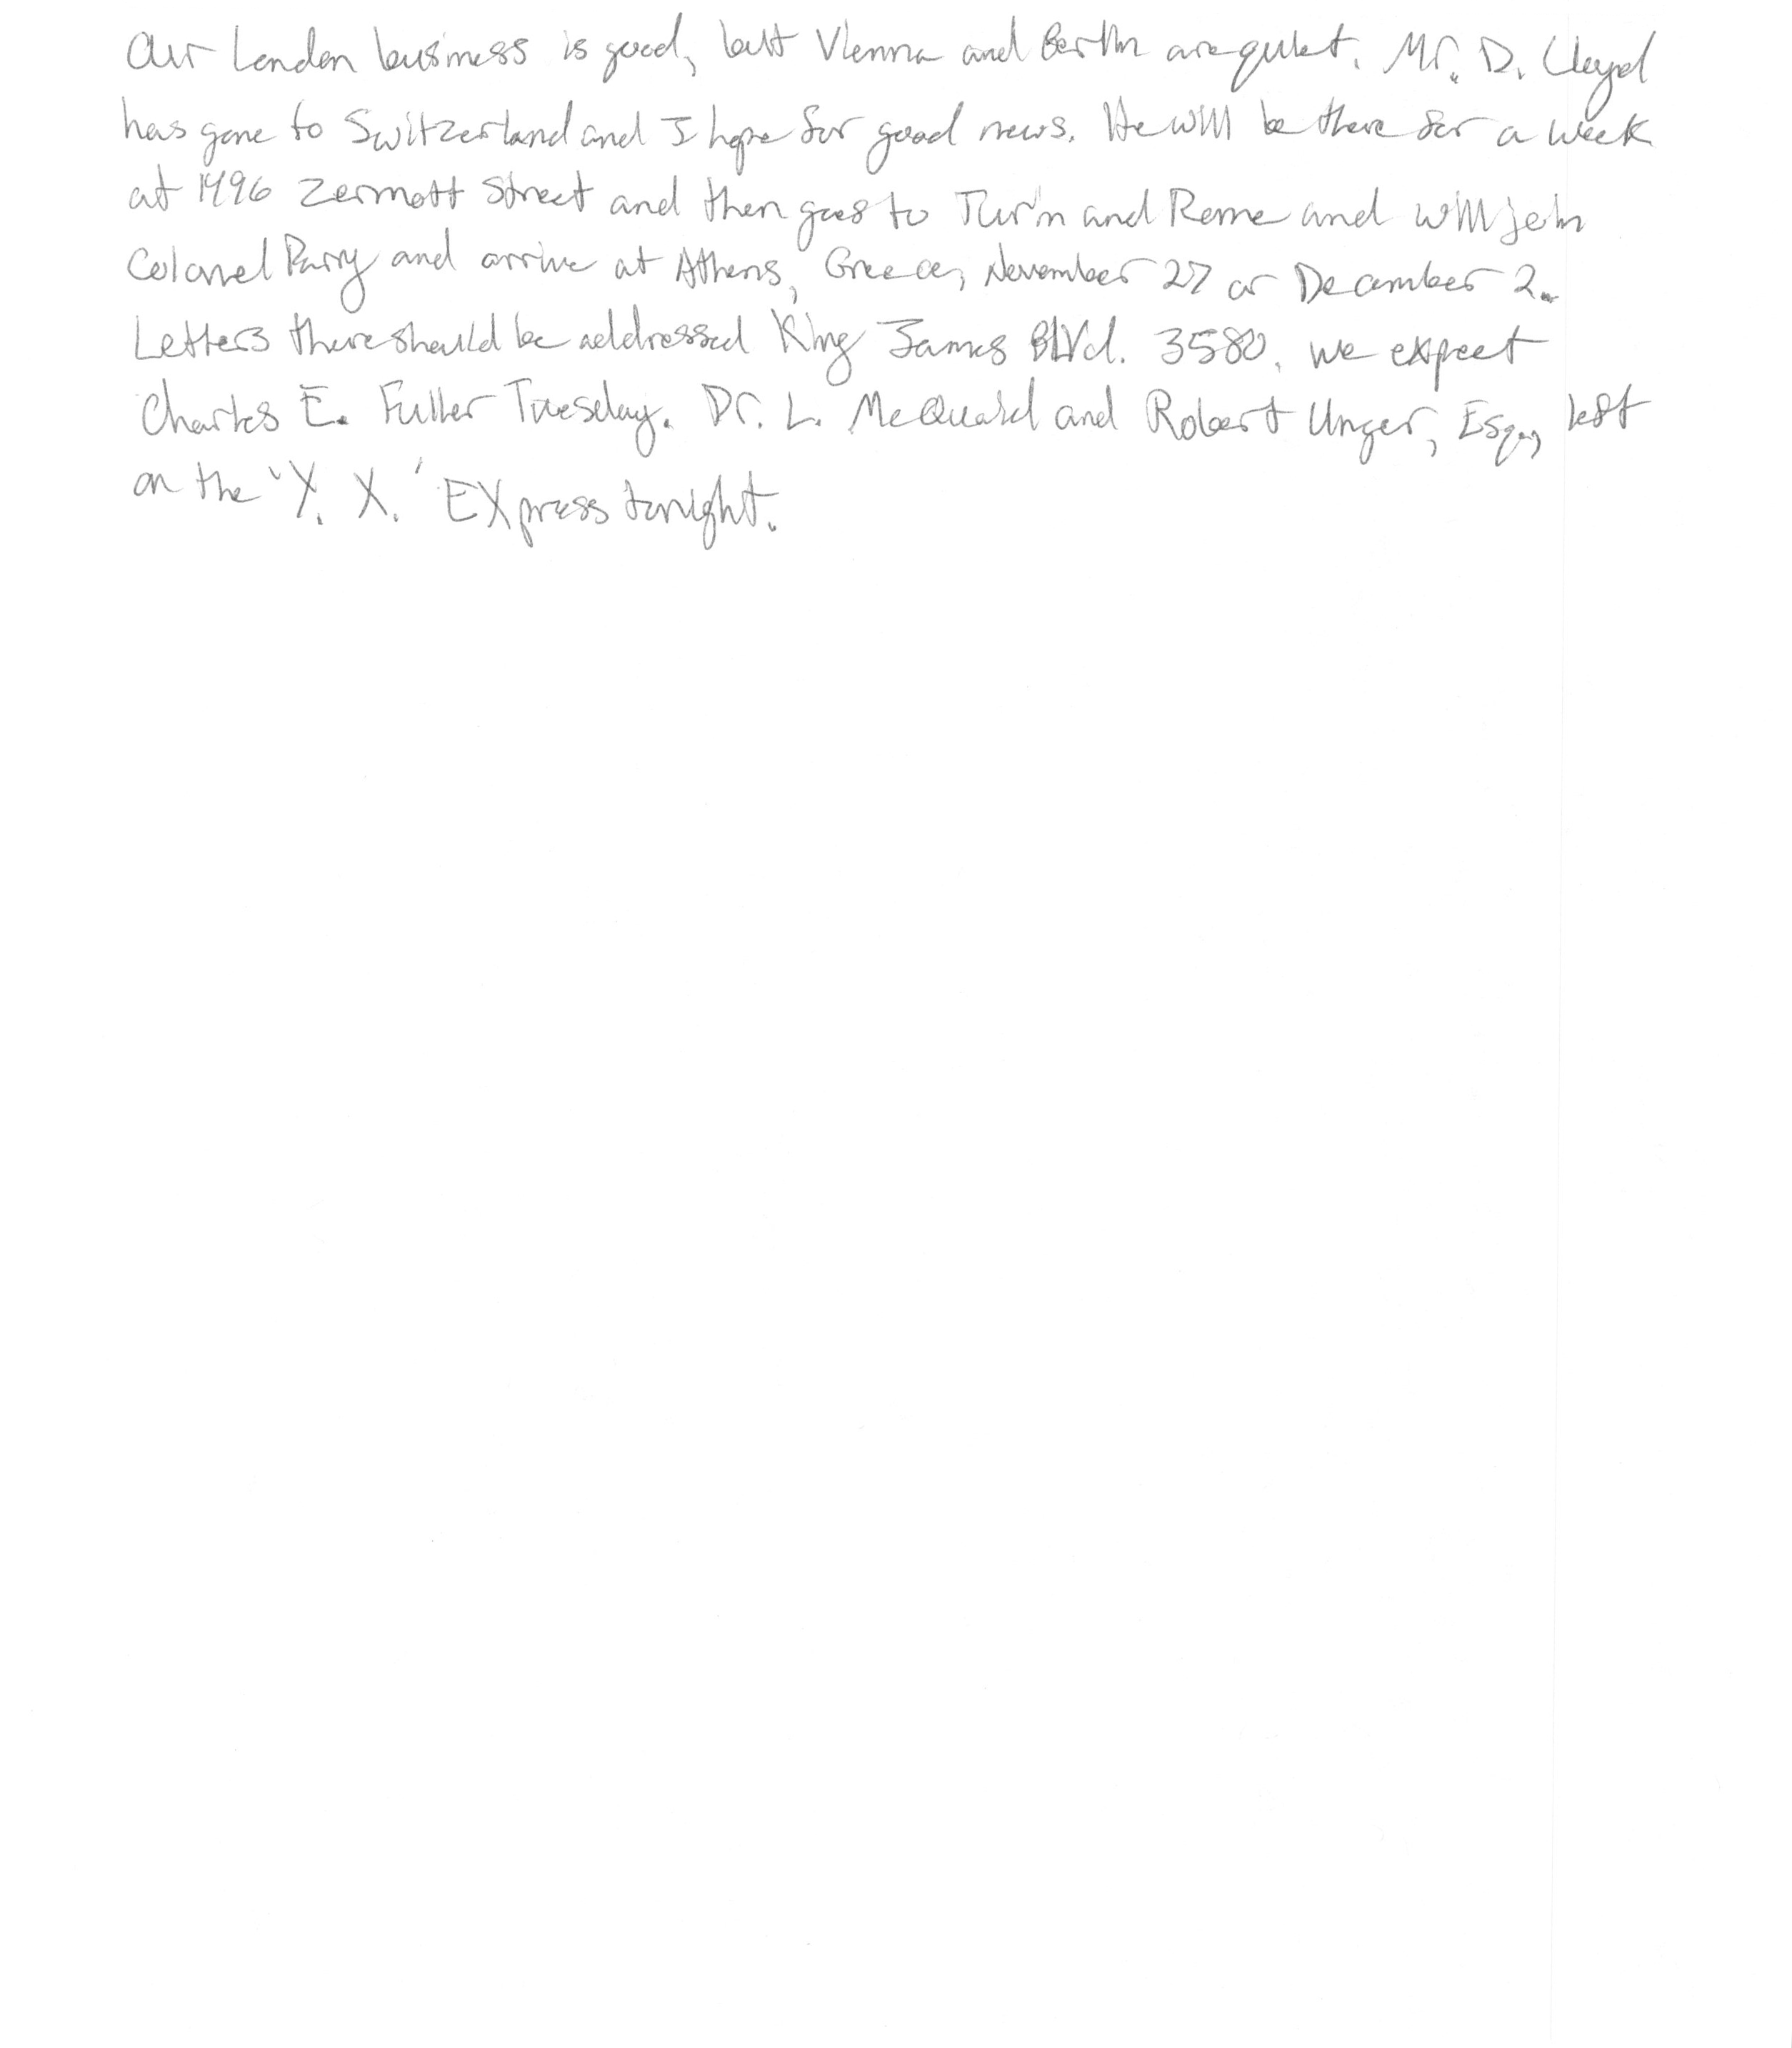 Our London business is good, but Vienna and Berlin are quiet. Mr. D. Lloyd
has gone to Switzerland and I hope for good news. He will be there for a week
at 1496 Zermott Street and then goes to Turin and Rome and will join
Colonel Parry and arrive at Athens, Greece, November 27 or December 2.
Letters there should be addressed King James Blvd. 3580. We expect
Charles E. Fuller Tuesday. Dr. L. McQuaid and Robert Unger, Esq., left
on the 'Y. X.' Express tonight.